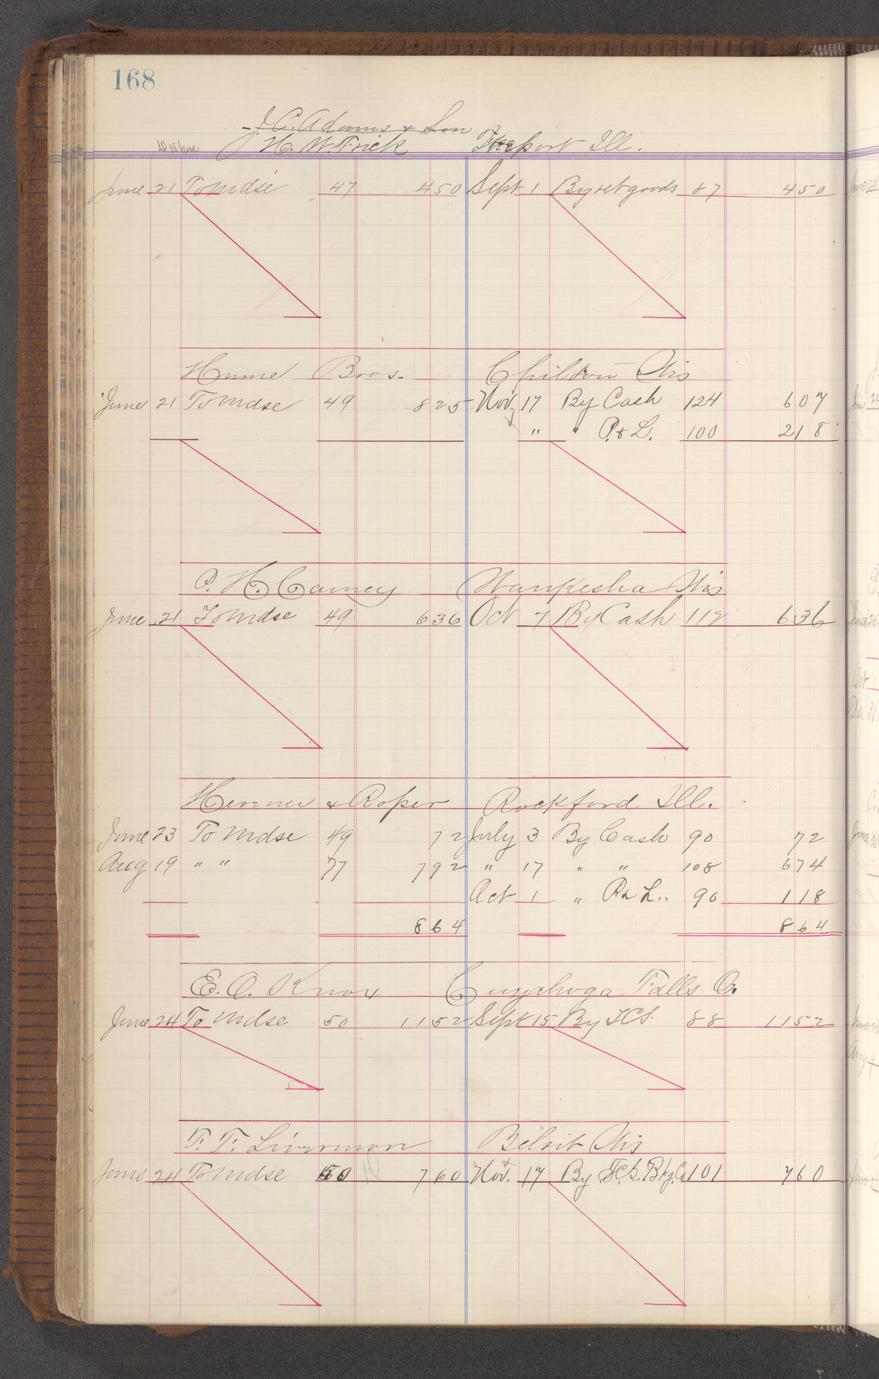 168
J. C. Adams & Son
H. W. Frick Freeport Ill.
June 21 To mdse 47 450 Sept 1 By ret goods 87 450
Hume Bros. Chilton Wis
June 21 To mdse 49 825 Nov. 17 By Cash 124 607
" " P. & L. 100 218
C. H. Camey Waukesha Wis
June 21 To mdse 49 636 Oct 7 By Cash 112 636
& Roper Rockford Ill.
June 23 To mdse 49 72 July 3 By Cash 90 72
Aug 19 " " 77 792 " 17 " " 108 674
Oct 1 " P & L.. 90 118
864 864
E. O. Knox Cuyahoga Falls O.
June 24 To mdse 50 1152 Sept 15 By 88 1152
T. T. Livermon Beloit Wis
June 24 To mdse 50 760 Nov. 17 By 101 760